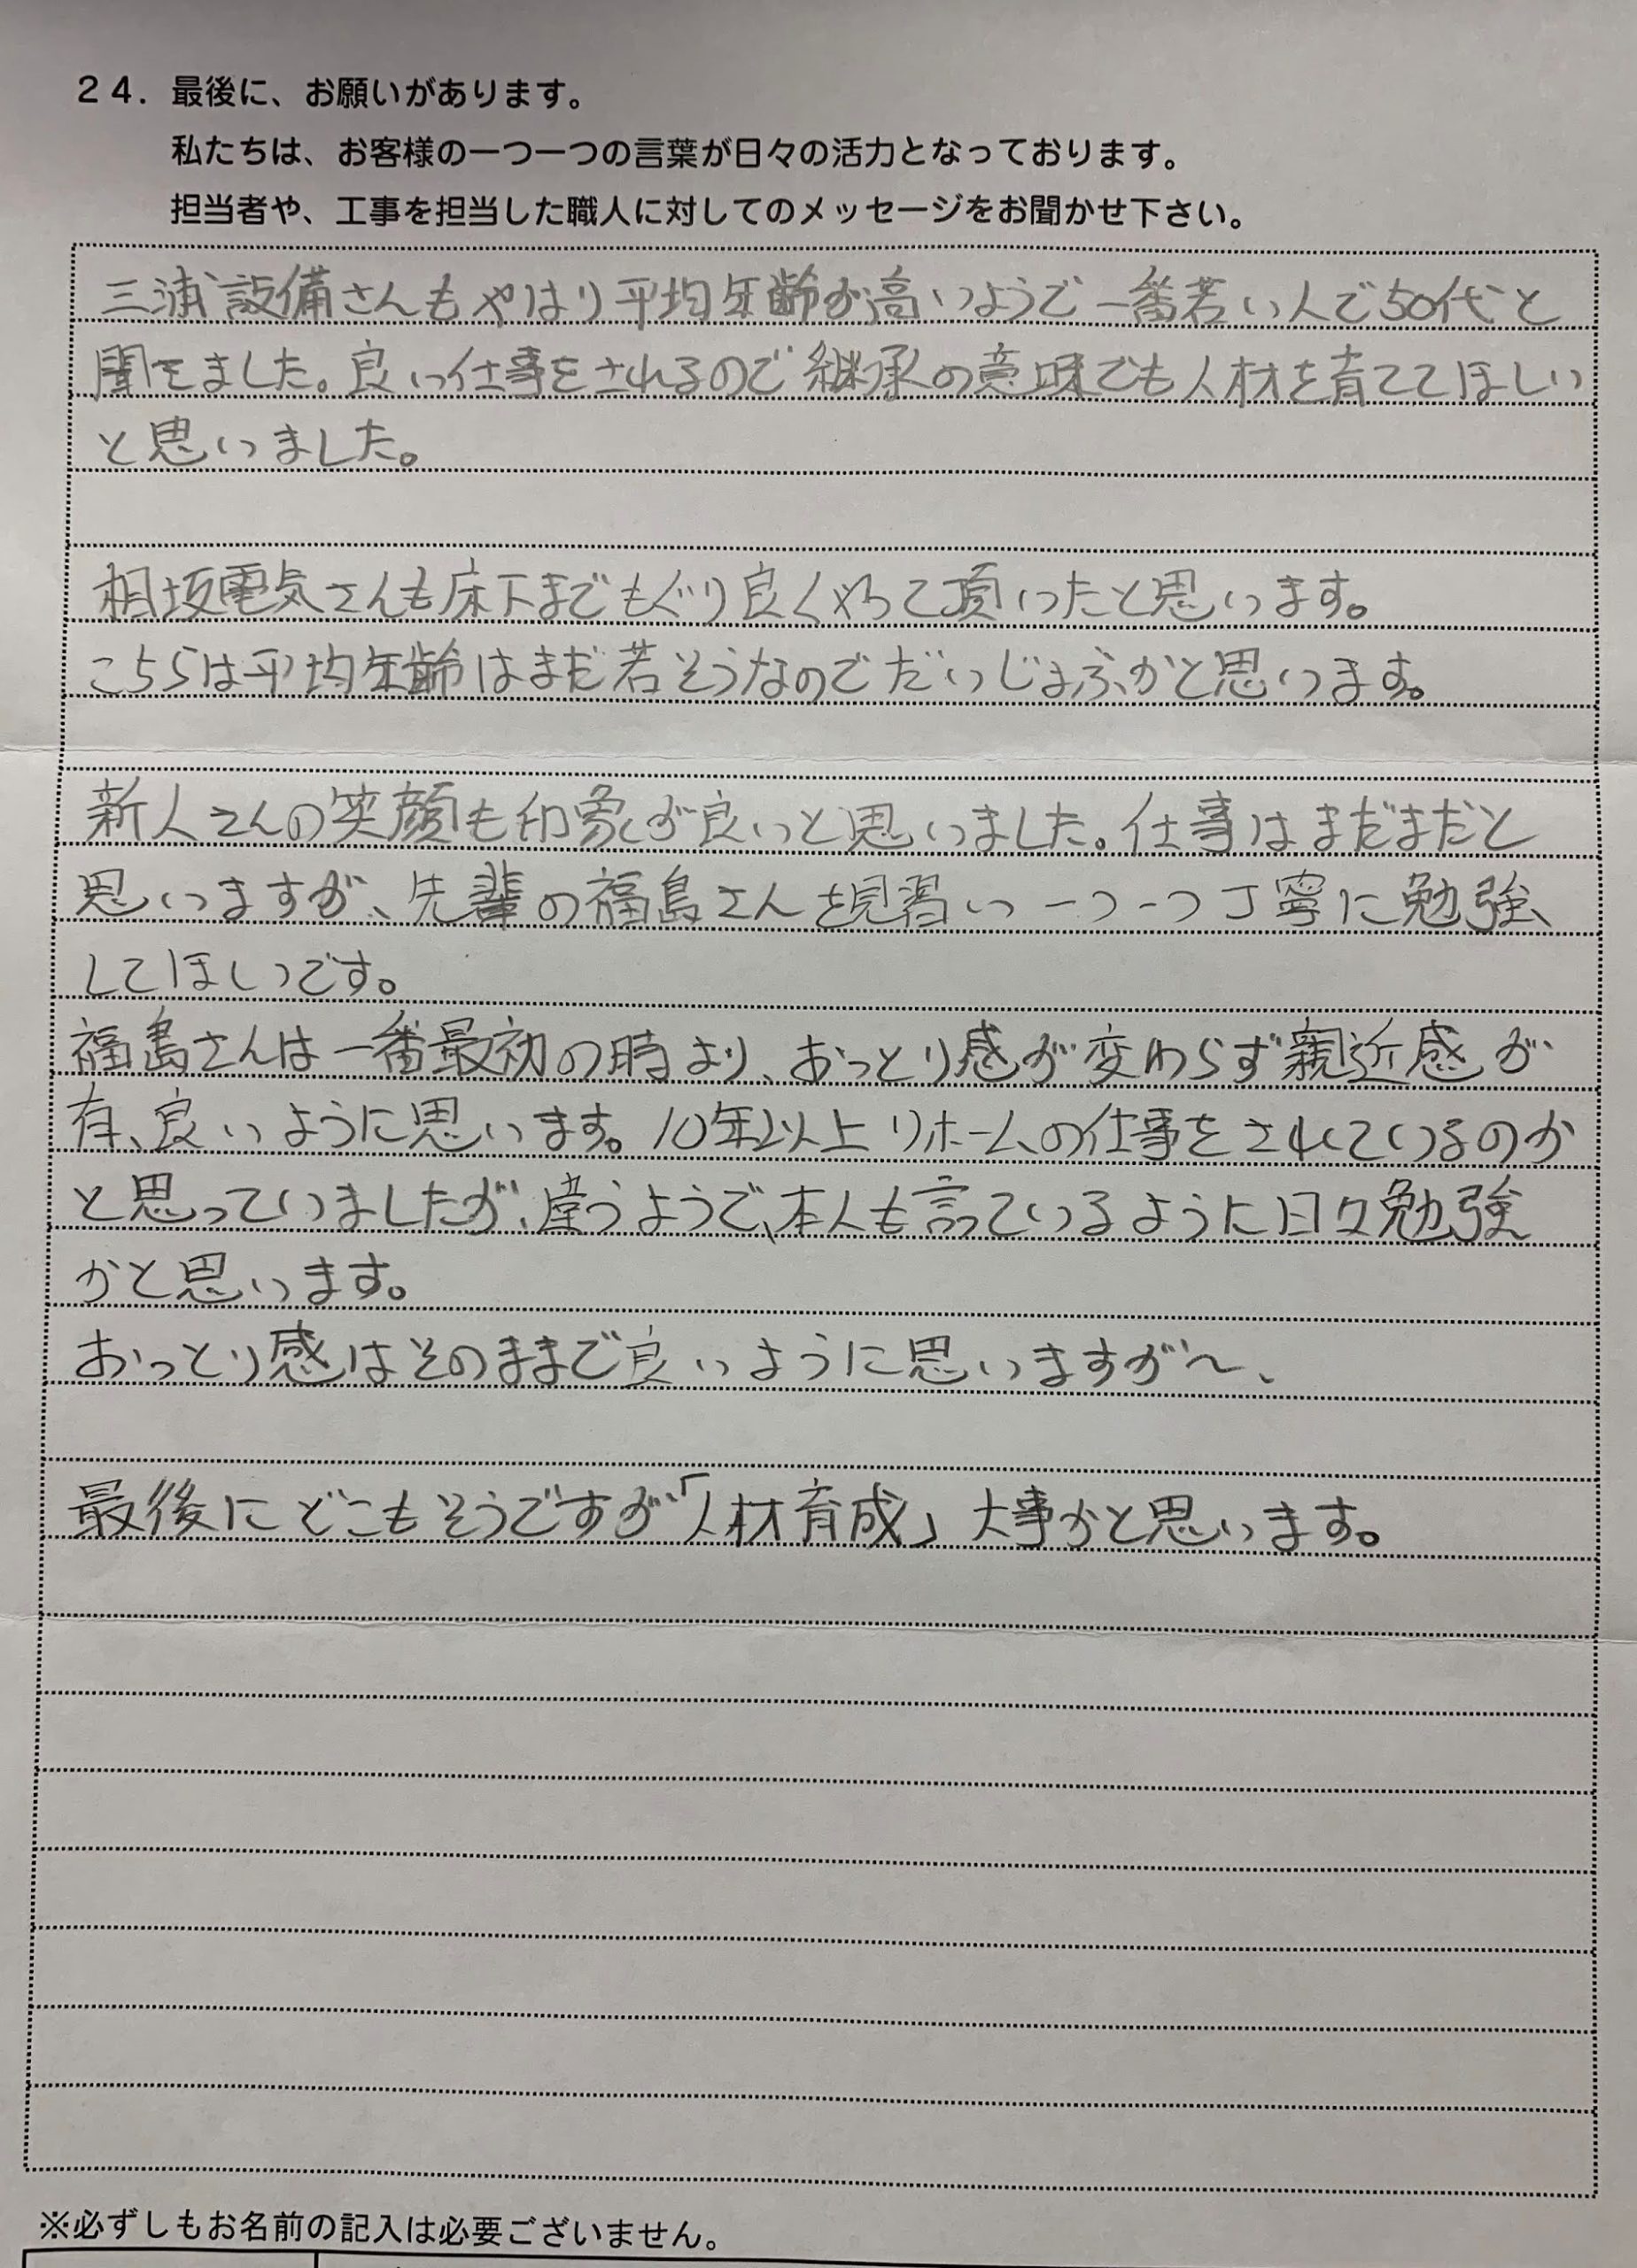 24．最後に、お願いがあります。
私たちは、お客様の一つ一つの言葉が日々の活力となっております。
担当者や、工事を担当した職人に対してのメッセージをお聞かせ下さい。
三浦設備さんもやはり平均年齢が高いようで一番若い人で50代と
聞きました。良い仕事をされるので継承の意味でも人材を育ててほしい
と思いました。
相坂電気さんも床下までもぐり良くやって頂いたと思います。
こちらは平均年齢はまだ若そうなのでだいじょぶかと思います。
新人さんの笑顔も印象が良いと思いました。仕事はまだまだと
思いますが、先輩の福島さんを見習い一つ一つ丁寧に勉強
してほしいです。
福島さんは一番最初の時より、おっとり感が変わらず親近感が
有、良いように思います。10年以上リホームの仕事をされているのか
と思っていましたが、違うようで、本人も言っているように日々勉強
かと思います。
おっとり感はそのままで良いように思いますが〜、
最後にどこもそうですが「人材育成」大事かと思います。
※必ずしもお名前の記入は必要ございません。